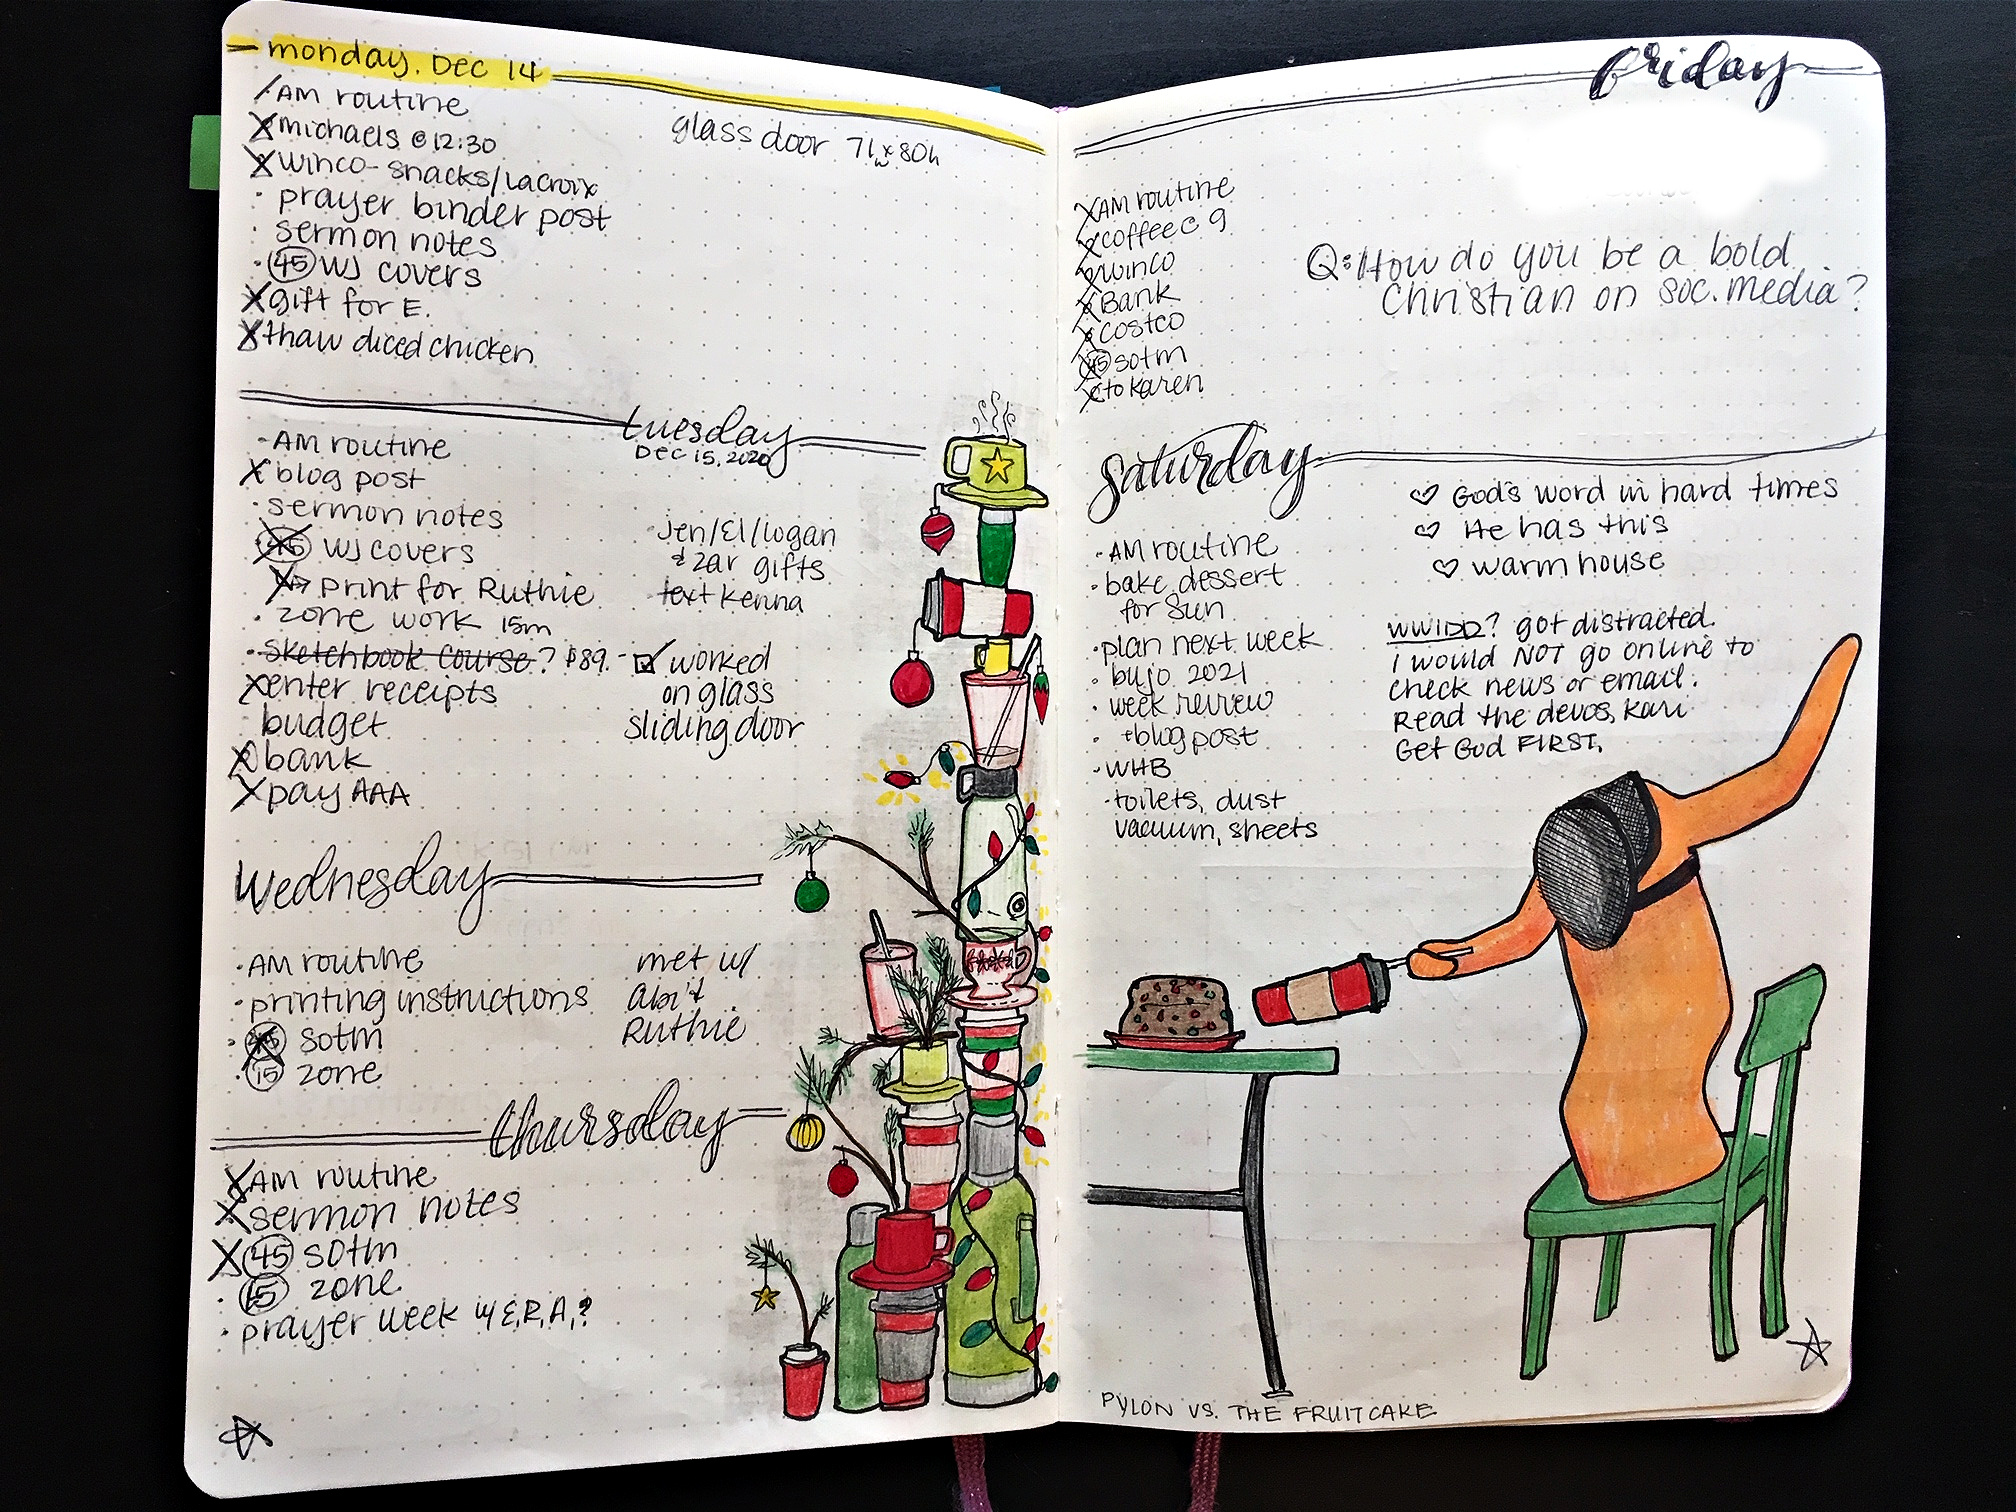 monday. Dec 14
/AM routine
X michaels @ 12:30
X winco - snacks/lacroix
· prayer binder post
· sermon notes
· 45 WJ covers
X gift for E.
X thaw diced chicken
glass door 71w x 80h
tuesday
Dec 15, 2020
- AM routine
X blog post
· sermon notes
45 WJ covers
X→ print for Ruthie
· zone work 15m
· sketchbook course? $89. -
X enter receipts
budget
X bank
X pay AAA
jen/El/logan
& zar gifts
text Kenna
☑ worked
on glass
sliding door
Wednesday
· AM routine
· printing instructions
· 45 sotm
· 15 zone
met w/
Abi &
Ruthie
thursday
X AM routine
X sermon notes
X 45 sotm
· 15 zone
· prayer week w/ E,R,A,?
friday
X AM routine
X coffee @ 9
X winco
X Bank
X costco
X 45 sotm
X c to Karen
Q: How do you be a bold
Christian on soc. media?
saturday
· AM routine
· bake dessert
for Sun
· plan next week
· bujo 2021
· week review
· +blog post
· WHB
· toilets, dust
vacuum, sheets
♡ God's word in hard times
♡ He has this
♡ warm house
WWIDD? got distracted.
I would NOT go online to
check news or email.
Read the devos, Kari
Get God FIRST.
PYLON VS. THE FRUITCAKE